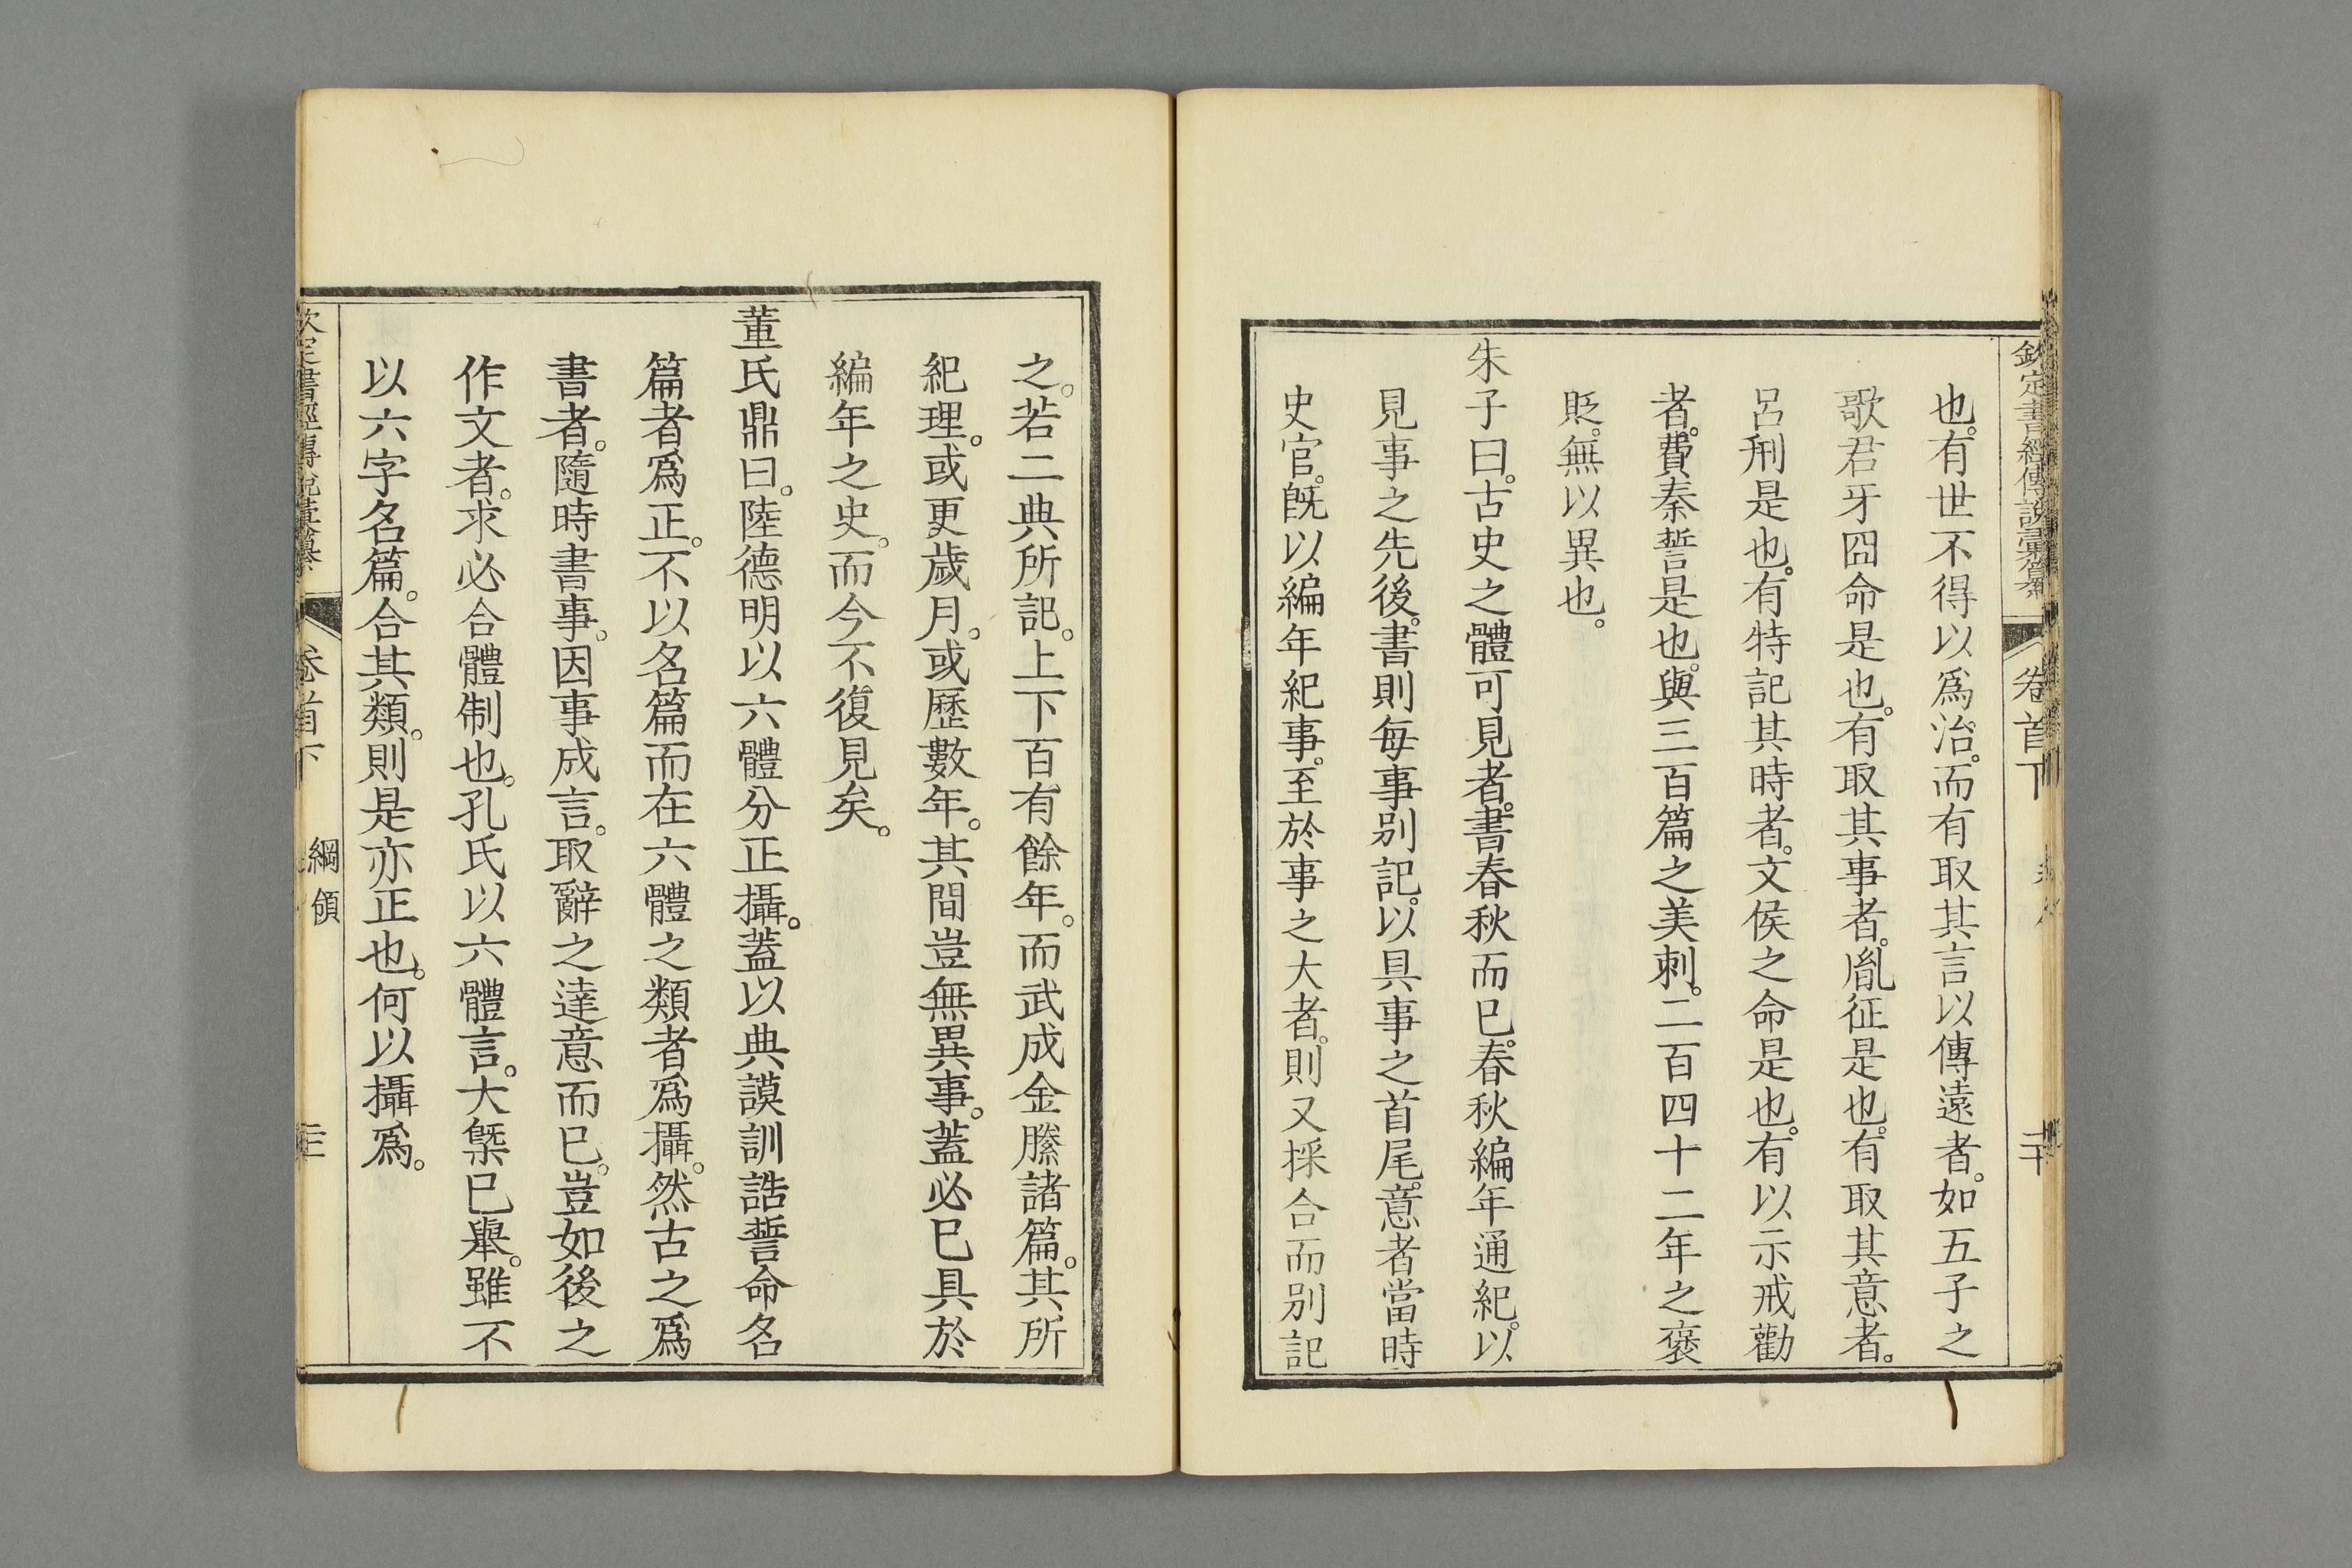 欽定書經傳說彙纂 卷首下 二十
也。有世不得以爲治。而有取其言以傳遠者。如五子之
歌君牙囧命是也。有取其事者。胤征是也。有取其意者。
呂刑是也。有特記其時者。文侯之命是也。有以示戒勸
者。費秦誓是也。與三百篇之美刺。二百四十二年之褒
貶。無以異也。
朱子曰。古史之體可見者。書春秋而已。春秋編年通紀。以
見事之先後。書則每事別記。以具事之首尾。意者當時
史官。旣以編年紀事。至於事之大者。則又採合而別記
之。若二典所記。上下百有餘年。而武成金縢諸篇。其所
紀理。或更歲月。或歷數年。其間豈無異事。蓋必已具於
編年之史。而今不復見矣。
董氏鼎曰。陸德明以六體分正攝。蓋以典謨訓誥誓命名
篇者爲正。不以名篇而在六體之類者爲攝。然古之爲
書者。隨時書事。因事成言。取辭之達意而已。豈如後之
作文者。求必合體制也。孔氏以六體言。大槩已舉。雖不
以六字名篇。合其類。則是亦正也。何以攝爲。
欽定書經傳說彙纂 卷首下 綱領